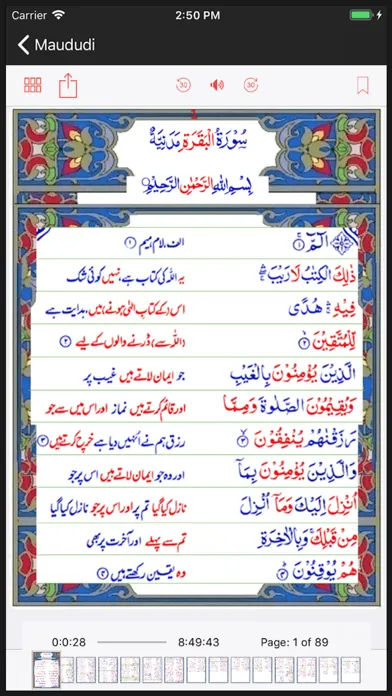 Carrier 2:50 PM
Maududi
30 30
1
سُوْرَةُ الْبَقَرَةِ مَدَنِيَّةٌ
بِسْمِ اللهِ الرَّحْمٰنِ الرَّحِيْمِ
الٓمّٓ ۚ ۱ الف، لام، میم ۱
ذٰلِكَ الْكِتٰبُ لَا رَيْبَ یہ اللہ کی کتاب ہے، نہیں کوئی شک
فِيْهِ هُدًى اس (کے کتاب الٰہی ہونے) میں، ہدایت ہے
لِّلْمُتَّقِيْنَ ۲ (اللہ سے) ڈرنے والوں کے لیے ۲
الَّذِيْنَ يُؤْمِنُوْنَ بِالْغَيْبِ جو ایمان لاتے ہیں غیب پر
وَيُقِيْمُوْنَ الصَّلٰوةَ وَمِمَّا اور قائم کرتے ہیں نماز اور اس میں سے جو
رَزَقْنٰهُمْ يُنْفِقُوْنَ ۳ رزق ہم نے انہیں دیا ہے خرچ کرتے ہیں ۳
وَالَّذِيْنَ يُؤْمِنُوْنَ بِمَآ اور وہ جو ایمان لاتے ہیں اس پر جو
اُنْزِلَ اِلَيْكَ وَمَآ اُنْزِلَ نازل کیا گیا تم پر اور اس پر جو نازل کیا گیا
مِنْ قَبْلِكَ وَبِالْاٰخِرَةِ تم سے پہلے اور آخرت پر بھی
هُمْ يُوْقِنُوْنَ ۴ وہ یقین رکھتے ہیں ۴
0:0:28 8:49:43 Page: 1 of 89